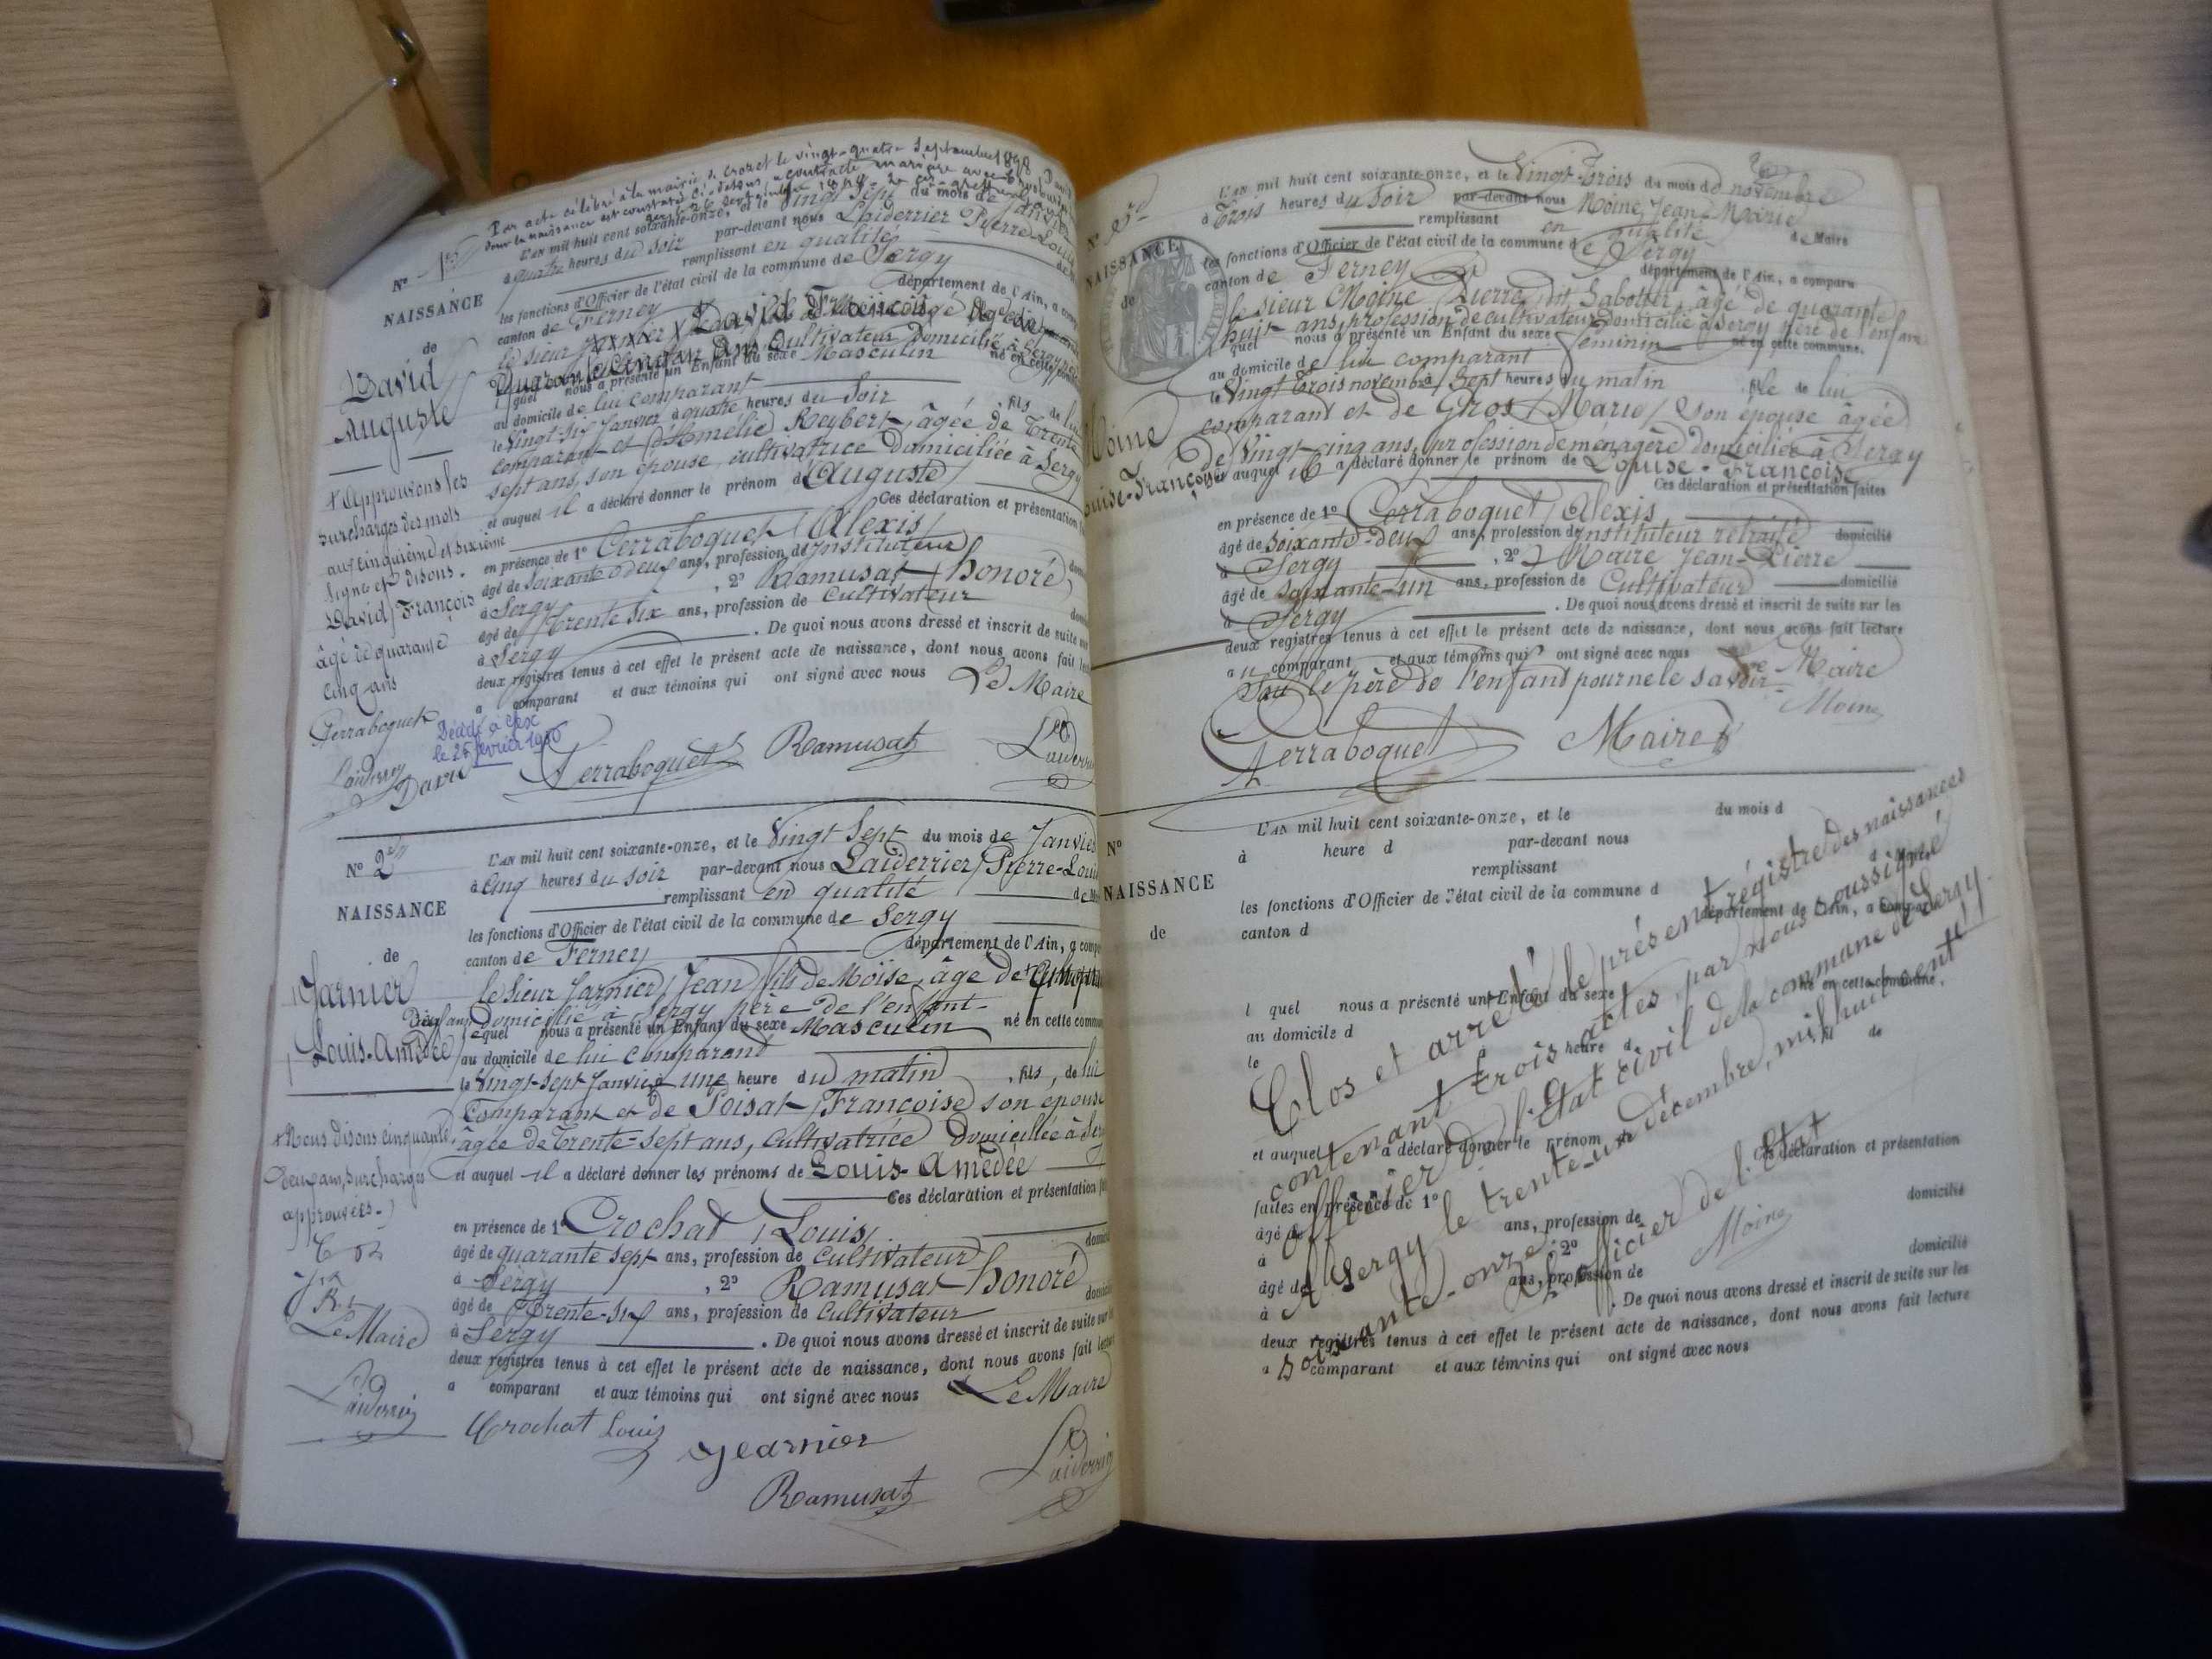 Par acte célébré à la mairie de Crozet le vingt-quatre Septembre
dont la naissance est constatée ci-dessous a contracté mariage avec
N° 1er
NAISSANCE
de
David
Auguste
L'AN mil huit cent soixante-onze, et le vingt sept du mois de Janvier
à quatre heures du soir par-devant nous Laiderrier Pierre-Louis
remplissant en qualité
les fonctions d'Officier de l'état civil de la commune de Sergy
canton de Ferney département de l'Ain, a comparu
le sieur David François
quarante cinq ans cultivateur domicilié à Sergy
quel nous a présenté un Enfant du sexe Masculin né en cette
au domicile de lui comparant
le vingt-six Janvier à quatre heures du soir , fils de lui
comparant et d'Amélie Reybert, âgée de trente
sept ans, son épouse, cultivatrice domiciliée à Sergy
et auquel il a déclaré donner le prénom d'Auguste
Ces déclaration et présentation
en présence de 1° Perraboquet Alexis
âgé de soixante deux ans, profession d'Instituteur
à Sergy , 2° Ramusat honoré
âgé de trente six ans, profession de Cultivateur
à Sergy . De quoi nous avons dressé et inscrit de suite sur
deux registres tenus à cet effet le présent acte de naissance, dont nous avons fait
a comparant et aux témoins qui ont signé avec nous
Le Maire
+ Approuvons les
surcharges des mots
aux cinquième et sixième
ligne et disons.
David François
âgé de quarante
cinq ans
Perraboquet
Décédé à Gex
le 25 février 1956
David
Perraboquet Ramusat
N° 2
NAISSANCE
de
Jarnier
Louis-Amédée
L'AN mil huit cent soixante-onze, et le vingt sept du mois de Janvier
à cinq heures du soir par-devant nous Laiderrier Pierre-Louis
remplissant en qualité
les fonctions d'Officier de l'état civil de la commune de Sergy
canton de Ferney département de l'Ain, a
le Sieur Jarnier Jean fils de Moïse, âgé de
domicilié à Sergy père de l'enfant
lequel nous a présenté un Enfant du sexe Masculin né en cette
au domicile de lui comparant
le vingt-sept Janvier à une heure du matin , fils, de lui
comparant et de Poisat Françoise son épouse
âgée de trente-sept ans, cultivatrice domiciliée à
et auquel il a déclaré donner les prénoms de Louis-Amédée
Ces déclaration et présentation
en présence de 1° Crochat Louis
âgé de quarante sept ans, profession de cultivateur
à Sergy , 2° Ramusat honoré
âgé de trente-six ans, profession de cultivateur
à Sergy . De quoi nous avons dressé et inscrit de suite sur
deux registres tenus à cet effet le présent acte de naissance, dont nous avons fait
a comparant et aux témoins qui ont signé avec nous Le Maire
+ Nous disons cinquante
surcharges
approuvées.
Le Maire
Crochat Louis
Jearnier
Ramusat
N°
NAISSANCE
de
Moine
Louise-Françoise
L'AN mil huit cent soixante-onze, et le vingt-trois du mois de novembre
à trois heures du soir par-devant nous Moine Jean-Marie
remplissant en qualité de Maire
les fonctions d'Officier de l'état civil de la commune de Sergy
canton de Ferney département de l'Ain, a comparu
le sieur Moine Pierre, dit Sabottier, âgé de quarante
huit ans, profession de cultivateur domicilié à Sergy père de l'enfant
quel nous a présenté un Enfant du sexe féminin né en cette commune,
au domicile de lui comparant
le vingt trois novembre à sept heures du matin , fille de lui
comparant et de Gros Marie son épouse âgée
de vingt-cinq ans, profession de ménagère domiciliée à Sergy
auquel il a déclaré donner le prénom de Louise-Françoise
Ces déclaration et présentation faites
en présence de 1° Perraboquet Alexis
âgé de soixante-deux ans, profession d'instituteur retraité domicilié
à Sergy , 2° Maire Jean-Pierre
âgé de soixante-un ans, profession de Cultivateur domicilié
à Sergy . De quoi nous avons dressé et inscrit de suite sur les
deux registres tenus à cet effet le présent acte de naissance, dont nous avons fait lecture
a comparant et aux témoins qui ont signé avec nous
sauf le père de l'enfant pour ne le savoir. Maire
Moine
Perraboquet Maire
N°
NAISSANCE
de
L'AN mil huit cent soixante-onze, et le du mois d
à heure d par-devant nous
remplissant
les fonctions d'Officier de l'état civil de la commune d
canton d département de l'Ain, a comparu
l quel nous a présenté un Enfant du sexe né en cette commune,
au domicile d
le heure d de
et auquel a déclaré donner le prénom de
Ces déclaration et présentation
faites en présence de 1°
âgé de ans, profession de domicilié
à , 2°
âgé de ans, profession de domicilié
à . De quoi nous avons dressé et inscrit de suite sur les
deux registres tenus à cet effet le présent acte de naissance, dont nous avons fait lecture
a comparant et aux témoins qui ont signé avec nous
Clos et arrêté le présent régistre des naissances
contenant trois actes par nous soussigné
officier de l'état civil de la commune de Sergy.
A Sergy le trente-un décembre, mil huit cent
soixante-onze
L'officier de l'État
Moine